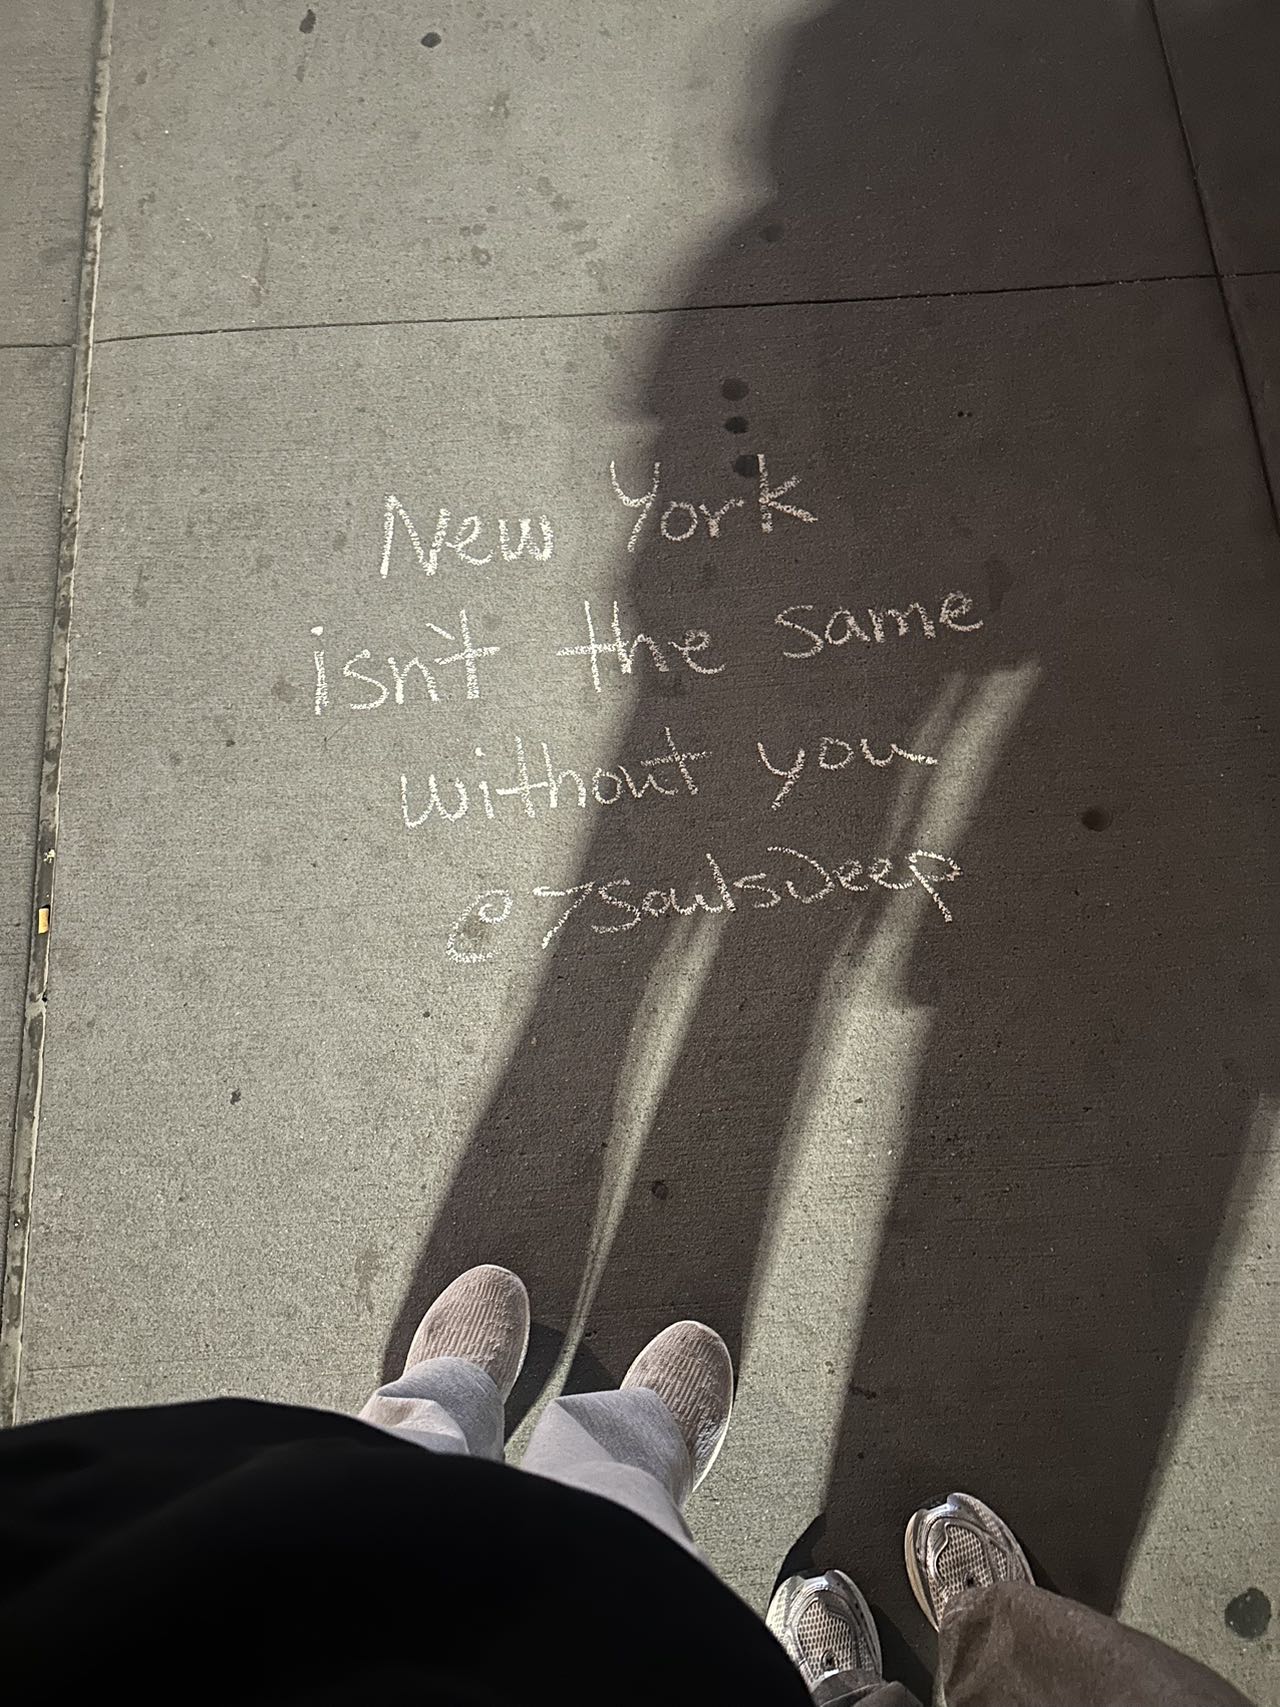 New York
isn't the same
without you
@7soulsDeep